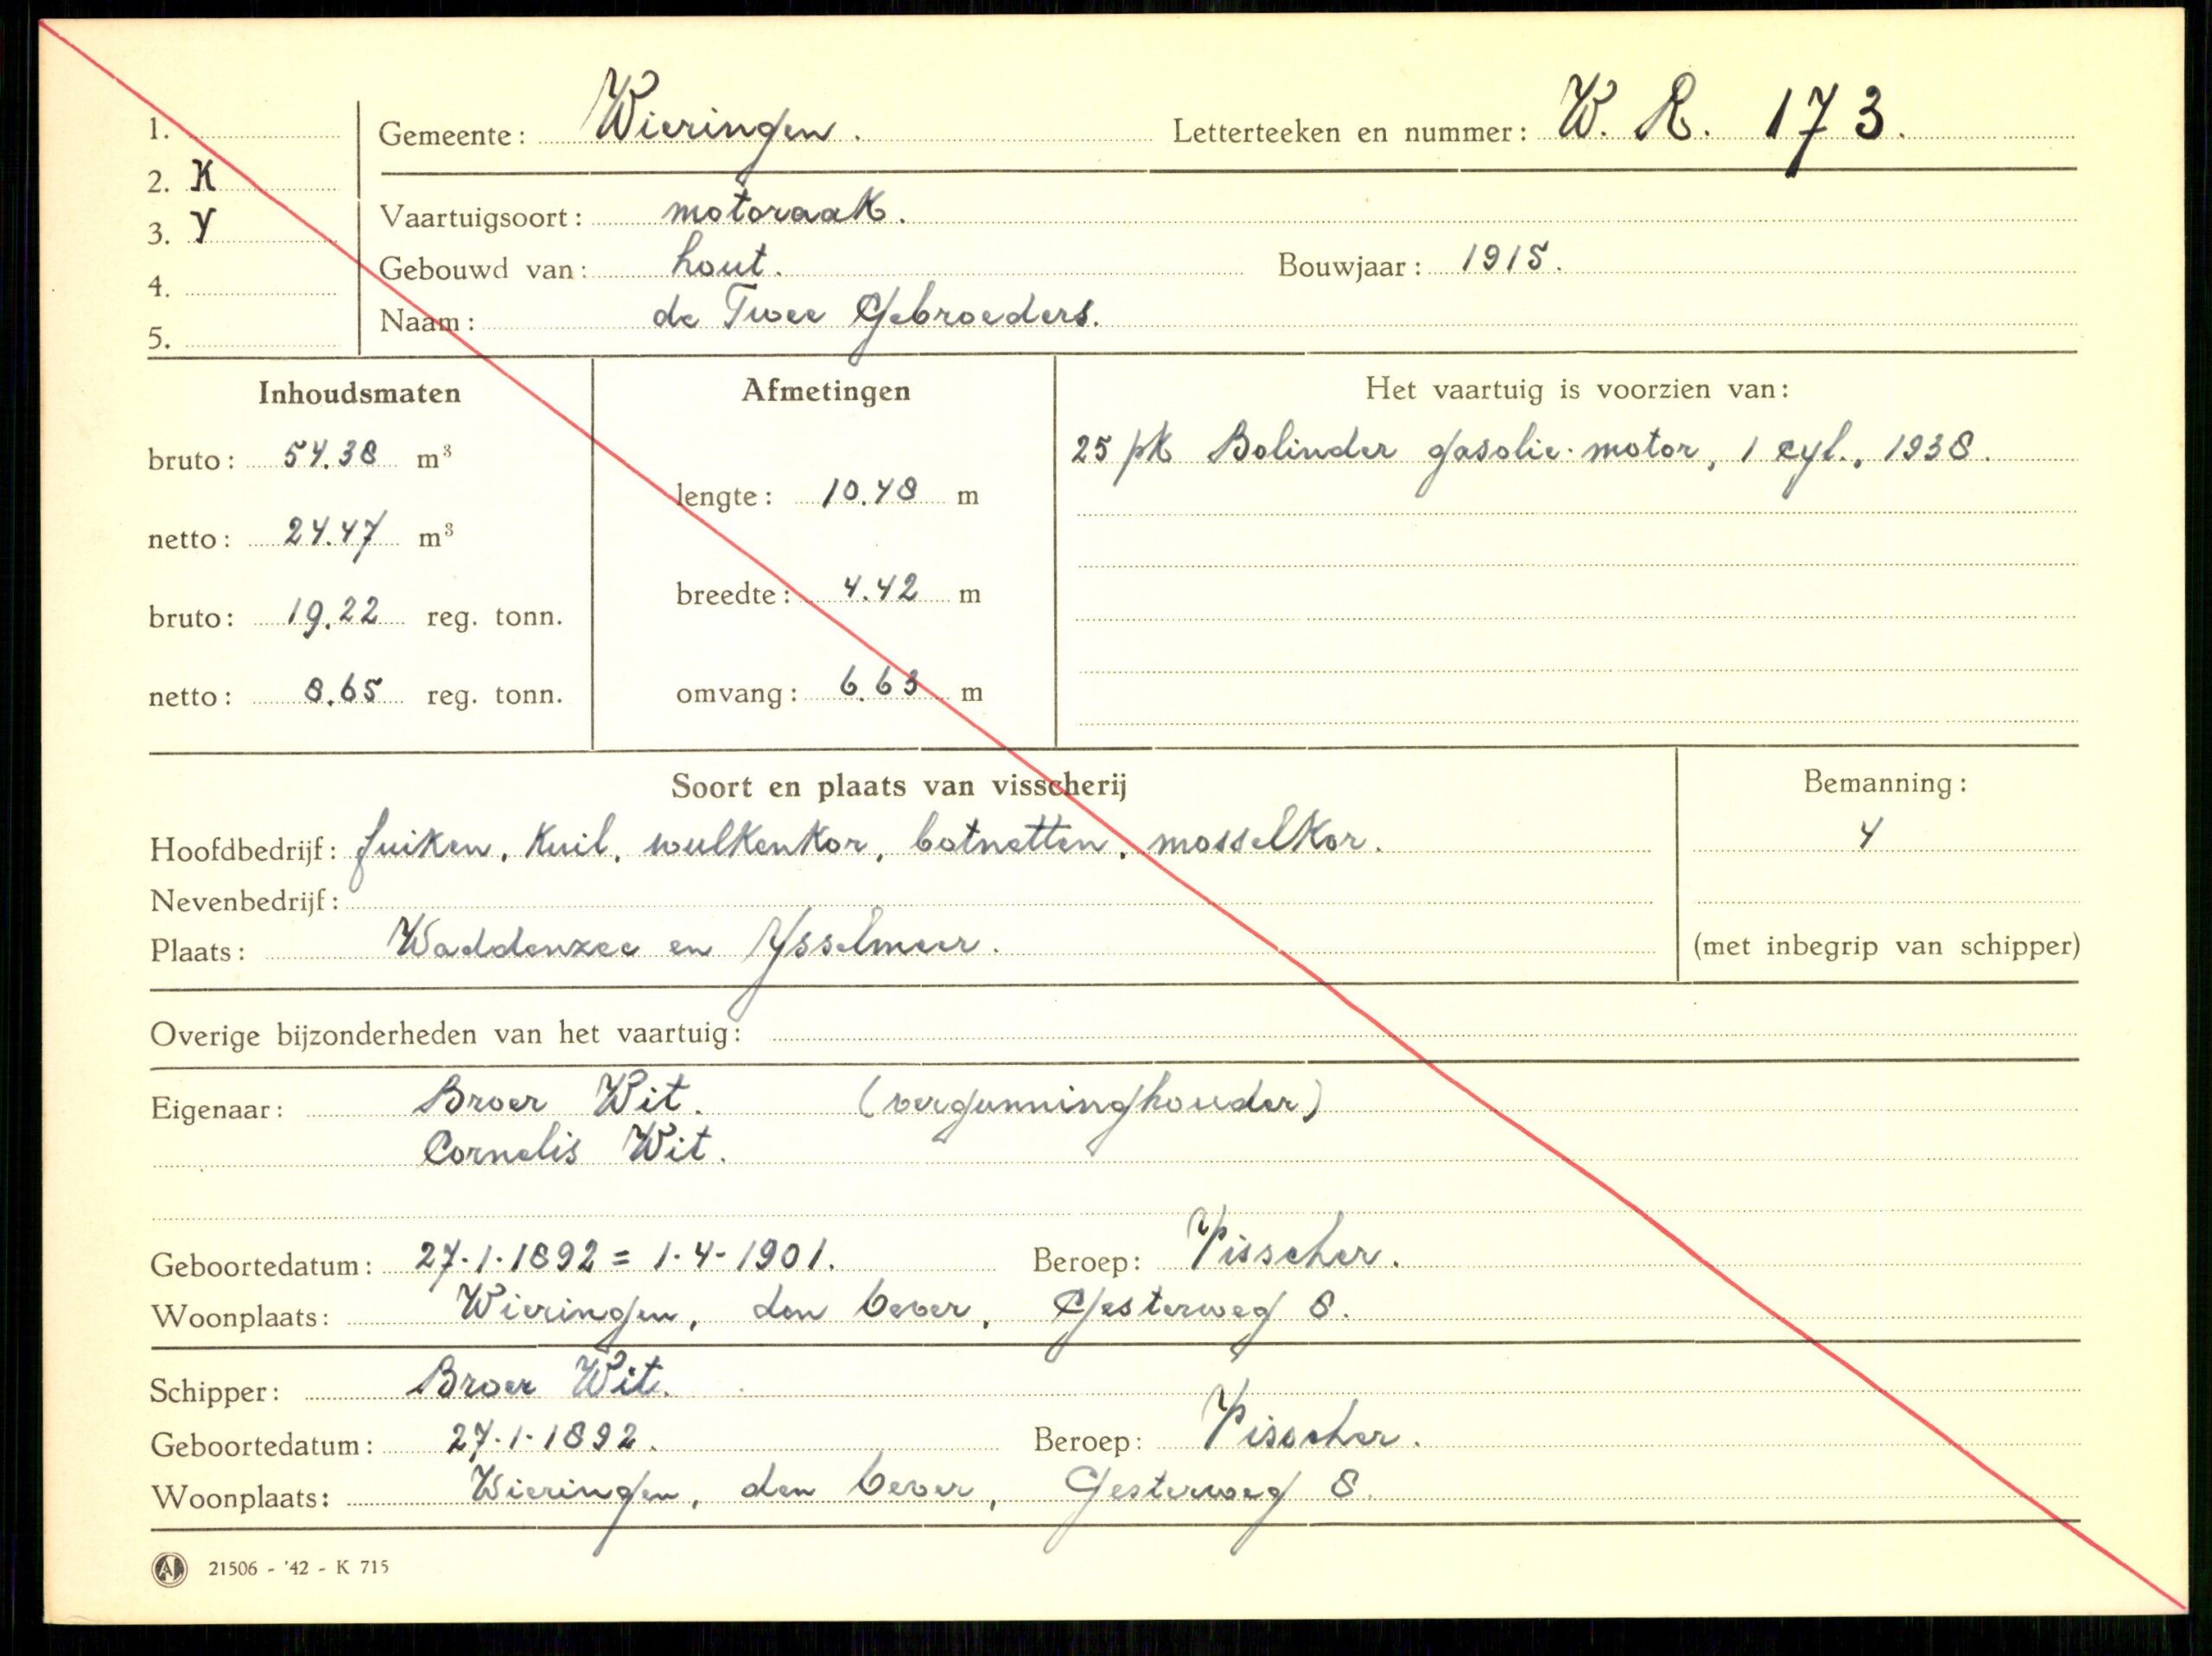 1.
2. K
3. Y
4.
5.
Gemeente: Wieringen. Letterteeken en nummer: W. R. 173.
Vaartuigsoort: motoraak.
Gebouwd van: hout. Bouwjaar: 1915.
Naam: de Twee Gebroeders.
Inhoudsmaten
bruto: 54.38 m³
netto: 24.47 m³
bruto: 19.22 reg. tonn.
netto: 8.65 reg. tonn.
Afmetingen
lengte: 10.48 m
breedte: 4.42 m
omvang: 6.63 m
Het vaartuig is voorzien van:
25 pk Bolinder gasolie-motor, 1 cyl., 1938.
Soort en plaats van visscherij
Hoofdbedrijf: fuiken, kuil, wulkenkor, botnetten, mosselkor.
Nevenbedrijf:
Plaats: Waddenzee en Ysselmeer.
Bemanning:
4
(met inbegrip van schipper)
Overige bijzonderheden van het vaartuig:
Eigenaar: Broer Wit. (vergunninghouder)
Cornelis Wit.
Geboortedatum: 27.1.1892 = 1-4-1901. Beroep: Visscher.
Woonplaats: Wieringen, den Oever, Gesterweg 8.
Schipper: Broer Wit.
Geboortedatum: 27.1.1892. Beroep: Visscher.
Woonplaats: Wieringen, den Oever, Gesterweg 8.
21506 - '42 - K 715